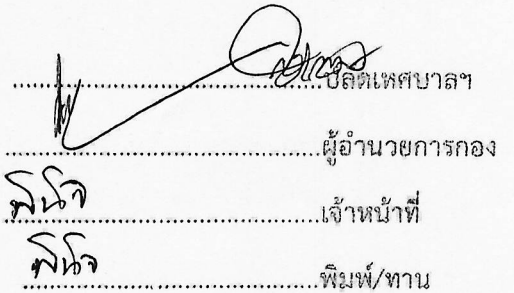 ....................ปลัดเทศบาลฯ
....................ผู้อำนวยการกอง
พินิจ....................เจ้าหน้าที่
พินิจ....................พิมพ์/ทาน